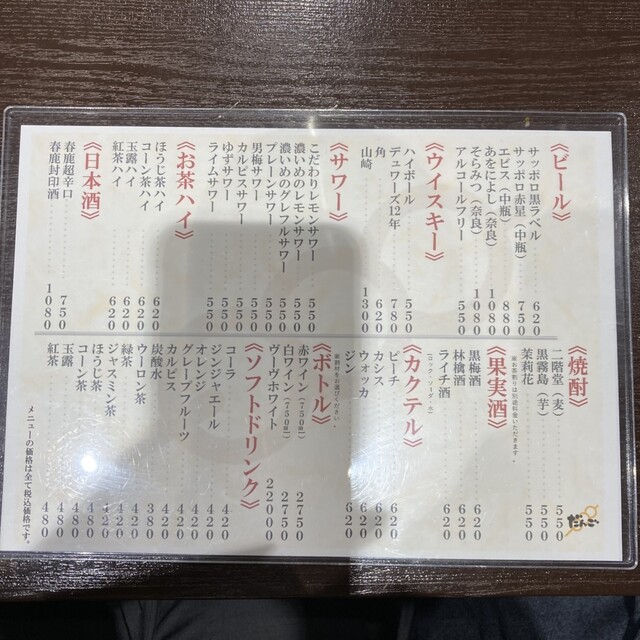 《ビール》
サッポロ黒ラベル 620
サッポロ赤星(中瓶) 750
エビス(中瓶) 880
あをによし(奈良) 1080
そらみつ(奈良) 1080
アルコールフリー 550
《ウイスキー》
ハイボール 550
デュワーズ12年 780
角 620
山崎 1300
《サワー》
こだわりレモンサワー 550
濃いめのレモンサワー 550
濃いめのグレフルサワー 550
プレーンサワー 550
男梅サワー 550
カルピスサワー 550
ゆずサワー 550
ライムサワー 550
《お茶ハイ》
ほうじ茶ハイ 620
コーン茶ハイ 620
玉露ハイ 620
紅茶ハイ 620
《日本酒》
春鹿超辛口 750
春鹿封印酒 1080
《焼酎》
二階堂(麦) 550
黒霧島(芋) 550
茉莉花 550
※お茶割りは別途料金いただきます。
《果実酒》
黒梅酒 620
林檎酒 620
ライチ酒 620
《カクテル》
(ロック・ソーダ・水)
ピーチ 620
カシス 620
ウォッカ 620
ジン 620
《ボトル》
赤ワイン(750ml) 2750
白ワイン(750ml) 2750
ヴーヴホワイト 22000
《ソフトドリンク》
コーラ 420
ジンジャエール 420
オレンジ 420
グレープフルーツ 420
カルピス 420
炭酸水 380
ウーロン茶 420
緑茶 420
ジャスミン茶 420
ほうじ茶 480
コーン茶 480
玉露 480
紅茶 480
メニューの価格は全て税込価格です。
だんご